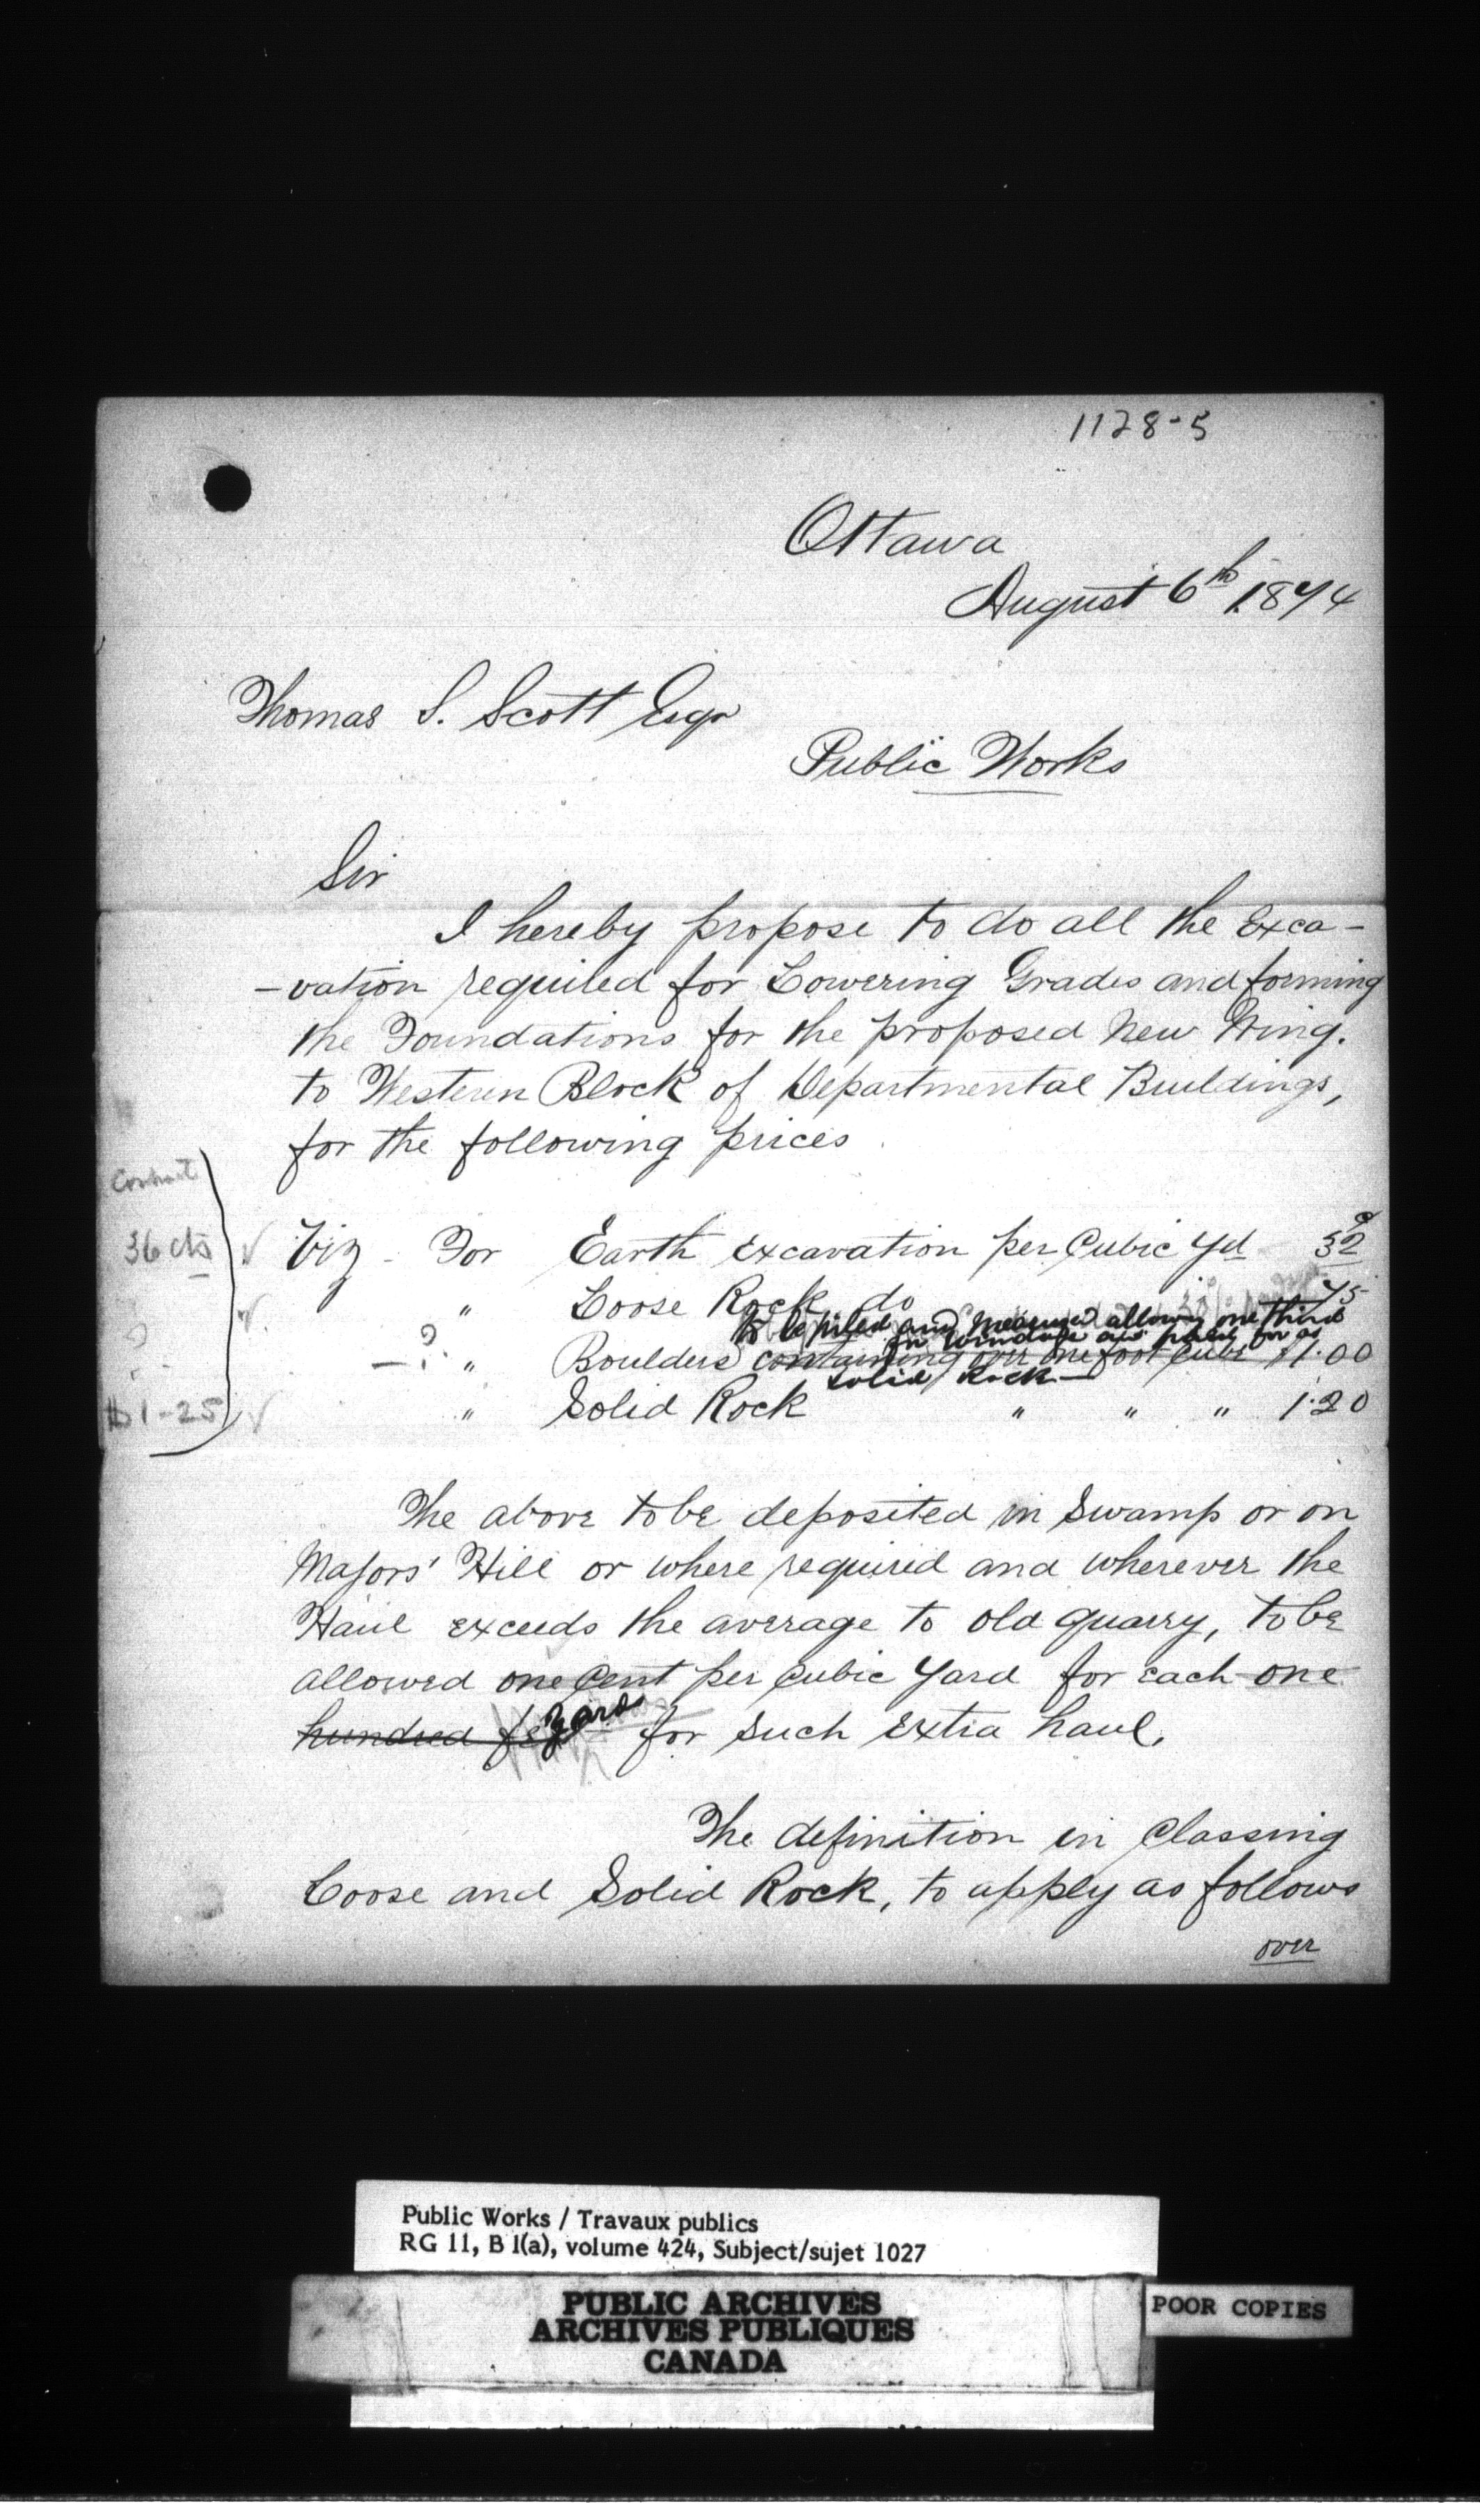 1128-5
Ottawa
August 6th 1874
Thomas S. Scott Esqr
Public Works
Sir
I hereby propose to do all the Exca-
-vation required for Lowering Grades and forming
the Foundations for the proposed New Wing.
to Western Block of Departmental Buildings,
for the following prices
Contract
36 cts
Viz - For Earth Excavation per Cubic Yd 32
" Loose Rock do 75
to be piled and measured allowing one third
for windage and paid for as
- ? " Boulders containing over one foot Cube $1.00
solid Rock —
$1-25
" Solid Rock " " " 1.20
The above to be deposited in Swamp or on
Majors' Hill or where required and wherever the
Haul exceeds the average to old quarry, to be
allowed one Cent per Cubic Yard for each one
hundred yards for such Extra haul.
The definition in Classing
Loose and Solid Rock, to apply as follows
over
Public Works / Travaux publics
RG 11, B 1(a), volume 424, Subject/sujet 1027
PUBLIC ARCHIVES
ARCHIVES PUBLIQUES
CANADA
POOR COPIES